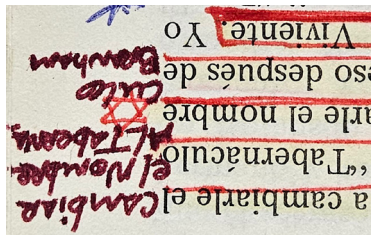 a cambiarle el
“Tabernáculo
arle el nombre
eso después de
Viviente. Yo
CAMBIAR
el Nombre
AL Tabern
culto
Branham